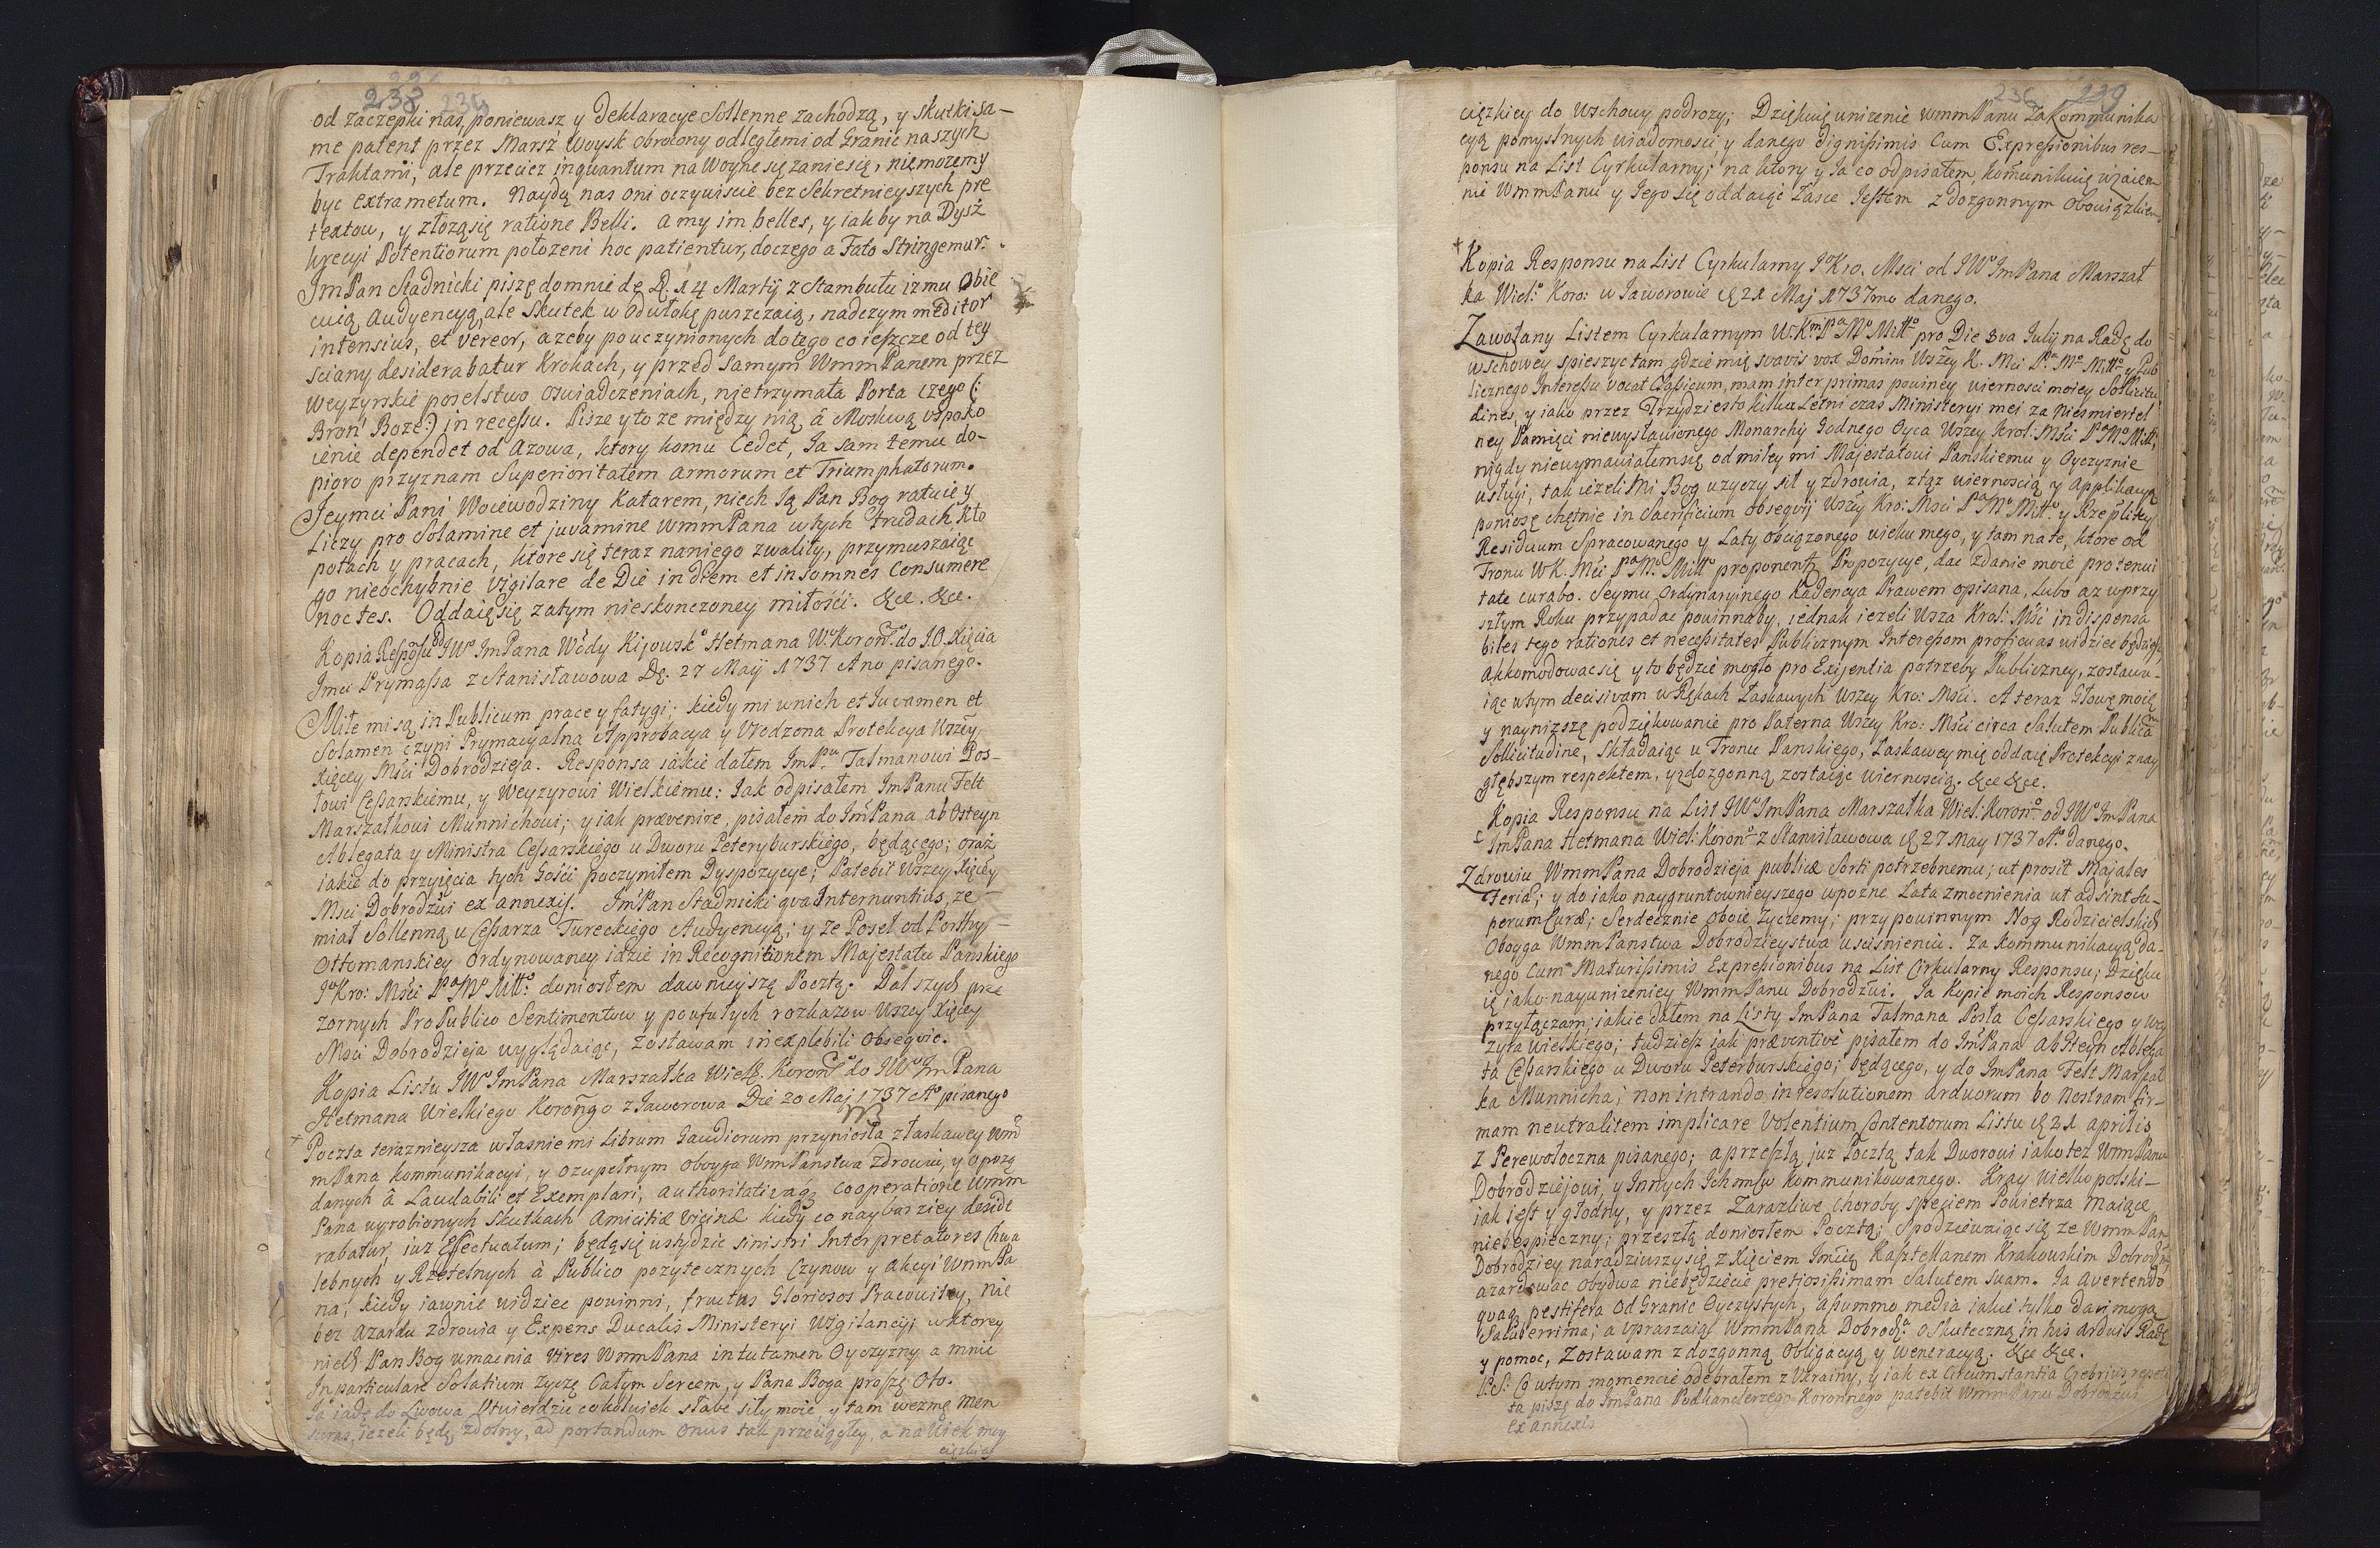 238 235
od zaczepki nas, poniewasz y Deklaracye Sollenne zachodzą, y skutki sa-
me patent przez Marsz Woysk obrocony odległemi od Granic naszych
Traktami, ale przeciez inquantum na Woynę się zaniesie, nie mozemy
byc extra metum. Naydą nas oni oczywiscie bez Sekretnieyszych pre
textow, y złozą się ratione Belli. a my im belles, y iakby na Dysz
krecyi Potentiorum połozeni hoc patientur, do czego a Fato Stringemur.
JmPan Stadnicki piszę do mnie de D. 14 Martij z Stambułu iz mu obie
cuią Audyencyą, ale Skutek w odwłokę puszczaią, nad czym meditor
intensius, et vereor, azeby po uczynionych do tego co ieszcze od tey
sciany desiderabatur Krokach, y przed samym WmmPanem przez
Wezyrskie poselstwo oswiadczeniach, nie trzymała Porta czego (:
Bron Boze:) in recessu. Pisze y to ze między nią á Moskwą uspoko
ienie dependet od Azowa, ktory komu Cedet, Ja sam temu do-
pioro przyznam Superioritatem armorum et Triumphatorum.
Jeymci Pani Woiewodziny Katarem, niech Ją Pan Bog ratuie y
Liczy pro Solamine et juvamine WmmPana w tych trudach, Kło
potach y pracach, ktore się teraz na niego zwaliły, przymuszaiąc
go nieochybnie vigilare de Die in diem et insomnes Consumere
noctes. Oddaię się zatym nieskonczoney miłości. &ce. &ce.
Kopia Responsu od JWo JmPana Wdy Kijowsko Hetmana Wo Koronго do JO. Xięcia
Jmci Prymassa z Stanisławowa D. 27 Maij 1737 Ano pisanego.
Miłe mi są in Publicum prace y fatygi; kiedy mi w nich et Juvamen et
Solamen czyni Prymacyalna Approbacya y Wrodzona Protekcya Wszey
Xięcey Mści Dobrodzieja. Responsa iakie dałem JmPu Talmanowi Pos-
łowi Cessarskiemu, y Wezyrowi Wielkiemu: Jak odpisałem JmPanu Felt
Marszałkowi Munnichowi; y iak prævenire, pisałem do JmPana ab Osteyn
Ablegata y Ministra Cessarskiego u Dworu Peterzburskiego, będącego; oraz
iakie do przyięcia tych Gości poczyniłem Dyspozycye; Patebit Wszey Xięcey
Msci Dobrodziu ex annexis. JmPan Stadnicki qua Internuntius, ze
miał Sollenną u Cessarza Tureckiego Audyencyą; y ze Poseł od Porthy
Ottomanskiey Ordynowaney idzie in Recognitionem Majestatu Panskiego
Jo Kro: Mści Pa Mo Mitto: doniosłem dawnieyszą Pocztą. Dalszych prze
zornych Pro Publico Sentimentow y poufałych rozkazow Wszey Xięcey
Msci Dobrodzieja wyglądaiąc, zostawam inexplebili obsequio.
Kopia Listu JWo JmPana Marszałka Wielk. Koronго do JWo JmPana
Hetmana Wielkiego Korongo z Jaworowa Die 20 Maj 1737 Ao pisanego
Poczta teraznieysza własnie mi Librum Gaudiorum przyniosła z łaskawey Wm
mPana kommunikacyi, y o zupełnym oboyga WmmPanstwa Zdrowiu, y o pożą
danych â Laudabili et Exemplari, authoritativaq cooperatione Wmm
Pana wyrobionych Skutkach Amicitiæ Vicinæ kiedy co naybardziey deside
rabatur, iuz Effectuatum; będą się wstydzic sinistri Interpretatores Chwa
lebnych y Rzetelnych à Publico pozytecznych Czynow y Akcyi WmmPa
na, kiedy iawnie widziec powinni, fructus Gloriosos Pracowitey, nie
bez azardu zdrowia y Expens Ducalis Ministeryi Vigilancyi, w ktorey
niech Pan Bog umacnia Vires WmmPana in tutamen Oyczyzny a mnie
In particulari Solatium zyczę Całym Sercem, y Pana Boga proszę Oto.
Ja iadę do Lwowa Utwierdzic cokolwiek słabe siły moie y tam wezmę men
suras, iezeli będę zdolny, ad portandum onus tak przeciągłey, a na Wiek moy
cięzkiey
236 239
cięzkiey do Wschowy podrozy; Dziękuię unizenie WmmPanu za Kommunika
cyą pomyslnych wiadomosci y danego dignissimis Cum Expressionibus res-
ponsu na List Cyrkularny; na ktory y Ja co odpisałem, komunikuię wzaiem
nie WmmPanu y Jego się oddaiąc Łasce Jestem z dozgonnym obowiązkiem.
Kopia Responsu na List Cyrkularny Jo Kro. Msci od JWo JmPana Marszał
ka Wiel:o Koro: w Jaworowie D 21 Maj 1737mo danego.
Zawołany Listem Cyrkularnym W. Kmci Pa Mo Mitto pro Die 3va Julij na Radę do
Wschowey spieszyc tam gdzie mię suavis vox Domini Wszey K. Mci Pa Mo Mitto y Pub
licznego Interessu vocat Classicum, mam inter primas powinney wiernosci moiey Sollicitu
dines, y iako przez Trzydziesto kilku Letni czas Ministeryi mei za niesmiertel
ney Pamięci niewysławionego Monarchy Godnego Oyca Wszey Krol: Mści Pa Mo Mitto,
nigdy niewymawiałem się od miłey mi Majestatowi Panskiemu y Oyczyznie
usługi, tak iezeli Mi Bog uzyczy sił y zdrowia, ztąz wiernoscią y applikacyą
poniosę chętnie in Sacrificium obsequij Wszey Kro: Msci Pa Mo Mitto y Rzeplitey
Residuum Spracowanego y Laty obciązonego wieku mego, y tam na te, ktore od
Tronu WK. Mci Pa Mo Mitto proponentur Propozycye, dac zdanie moie pro tenui
tate curabo. Seymu Ordynaryinego Kadencya Prawem opisana, lubo az w przy
szłym Roku przypadac powinnaby, iednak iezeli Wsza Krol: Mśc indispensa
biles tego rationes et necessitates Publicznym Interessom proficuas widziec będziesz,
akkomodowac się y to będzie mogło pro Exigentia potrzeby Publiczney, zostawu-
iąc w tym decisivam w Rękach Łaskawych Wszey Kro: Mści. A teraz Głowę moię
y nayniższe podziękowanie pro Paterna Wszey Kro: Mści circa Salutem Publicam
Sollicitudine, składaiąc u Tronu Panskiego, Łaskawey mię oddaię Protekcyi z nay
głębszym respektem, y z dozgonną zostaiąc wiernoscią. &ce &ce.
Kopia Responsu na List JWo JmPana Marszałka Wiel: Korono od JWo JmPana
JmPana Hetmana Wiel: Korono z Stanisławowa D 27 May 1737 Ao danego.
Zdrowiu WmmPana Dobrodzieja publicæ Sorti potrzebnemu, ut prosit Majales
Feriæ; y do iako naygruntownieyszego w pozne Lata zmocnienia ut adsint Su-
perum Curæ; Serdecznie oboie Zyczemy; przy powinnym Nog Rodzicielskich
Oboyga WmmPanstwa Dobrodzieystwa uscisnieniu. Za Kommunikacyą da-
nego Cum Maturissimis Expressionibus na List Cirkularny Responsu; dzięku
ię iako nayunizeniey WmmPanu Dobrodziui. Ja Kopie moich Responsow
przyłączam, iakie dałem na Listy JmPana Talmana Posła Cessarskiego y We
zyra Wielkiego; tudziesz iak præventive pisałem do JmPana AbSteyn Ablega
ta Cessarskiego u Dworu Peterburskiego, będącego, y do JmPana Felt Marszał
ka Munnicha; non intrando in resolutionem arduorum bo Nostram fir-
mam neutralitem implicare Volentium Contentorum Listu D 21 aprilis
z Perewołoczna pisanego; a przeszłą juz Pocztą tak Dworowi iako tez WmmPanu
Dobrodziejowi, y Innych Ichmściow kommunikowanego. Kray Wielkopolski
iak iest y głodny, y przez Zarazliwe choroby speciem Powietrza maiące
niebespieczny; przeszłą doniosłem Pocztą; Spodziewaiąc się ze WmmPan
Dobrodziey naradziwszy się z Xięciem Jmcią Kasztellanem Krakowskim Dobrodz:
azardowac obydwa niebędziecie pretiosissimam Salutem Suam. Ja avertendo
quæq; pestifera od Granic Oyczystych, assummo media iakie tylko dari mogą
Saluberrima; a upraszaiąc WmmPana Dobrodza o skuteczną in his arduis Radę
y pomoc, Zostawam z dozgonną Obligacyą y Weneracyą. &ce &ce.
P.S. Co w tym momencie odebrałem z Ukrainy, y iak ex Circumstantia Crebrius repeti
ta piszę do JmPana Podkanclerzego Koronnego patebit WmmPanu Dobrodziui
ex annexis